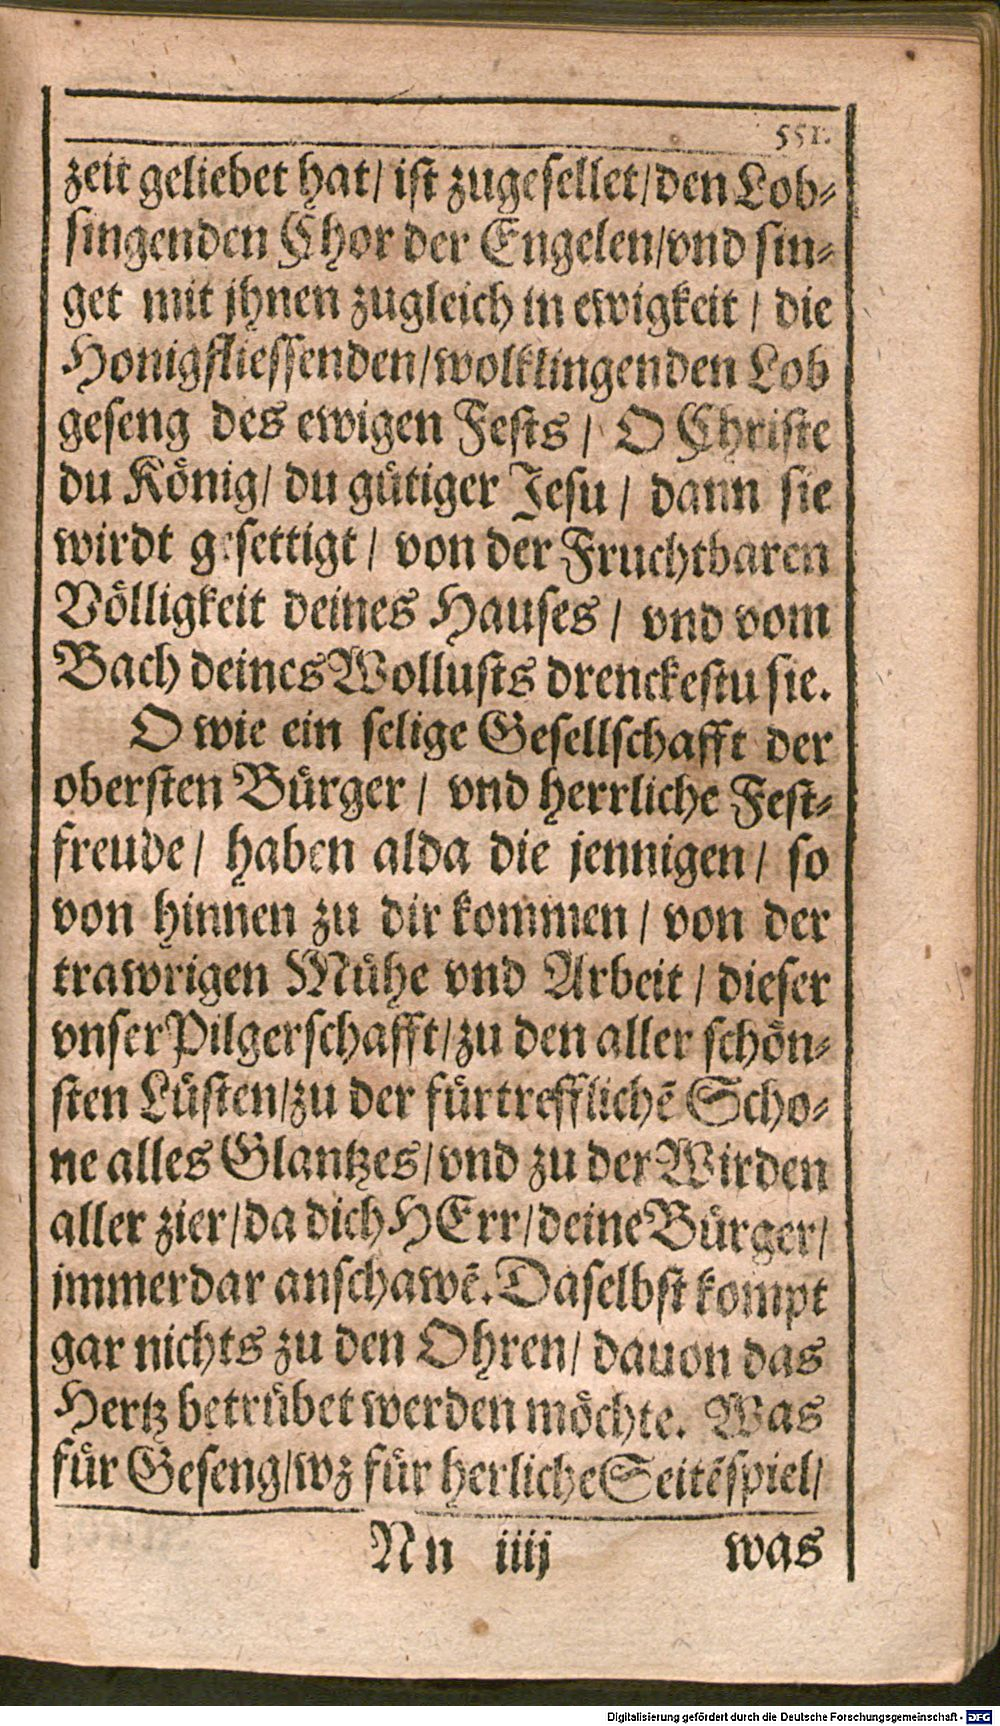 551.
zeit geliebet hat/ ist zugesellet/den Lob⸗
singenden Chor der Engelen/vnd sin⸗
get mit jhnen zugleich in ewigkeit / die
Honigfliessenden/wolklingenden Lob
geseng des ewigen Fests / O Christe
du König/ du gütiger Jesu / dann sie
wirdt gesettigt / von der Fruchtbaren
Völligkeit deines Hauses / vnd vom
Bach deines Wollusts drenckestu sie.
O wie ein selige Gesellschafft der
obersten Bürger / vnd herrliche Fest⸗
freude / haben alda die jennigen / so
von hinnen zu dir kommen / von der
trawrigen Mühe vnd Arbeit / dieser
vnser Pilgerschafft/zu den aller schön⸗
sten Lüsten/zu der fürtrefflichẽ Scho⸗
ne alles Glantzes/vnd zu der Wirden
aller zier/da dich HErr/deine Bürger/
jmmerdar anschawẽ. Daselbst kompt
gar nichts zu den Ohren/ dauon das
Hertz betrübet werden möchte. Was
für Geseng/wz für herliche Seitẽspiel/
Nn iiij was
Digitalisierung gefördert durch die Deutsche Forschungsgemeinschaft - DFG